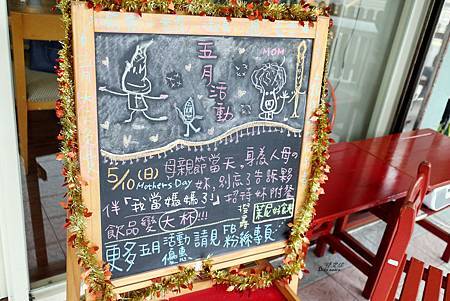 五月活動
MOM
5/10(日)母親節當天,身為人母の
Mother's Day 妳,別忘了告訴夥
伴「我當媽媽了」招待妳附餐
飲品變(大杯)!!!
更多五月活動請見FB粉絲專頁
優惠